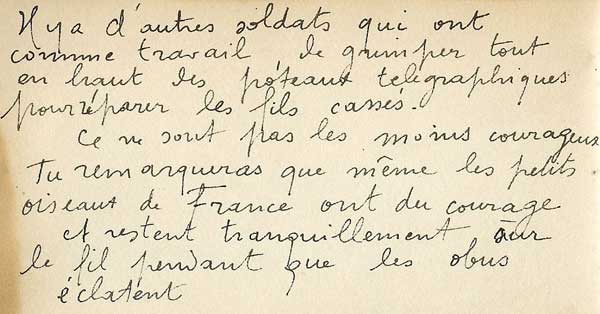 Il y a d'autres soldats qui ont
comme travail de grimper tout
en haut des pôteaux telegraphiques
pour réparer les fils cassés.
Ce ne sont pas les moins courageux
Tu remarqueras que même les petits
oiseaux de France ont du courage
et restent tranquillement sur
le fil pendant que les obus
éclatent